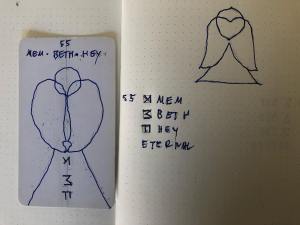 55
MEM • BETH • HEY
55 MEM
BETH
HEY
ETERNAL